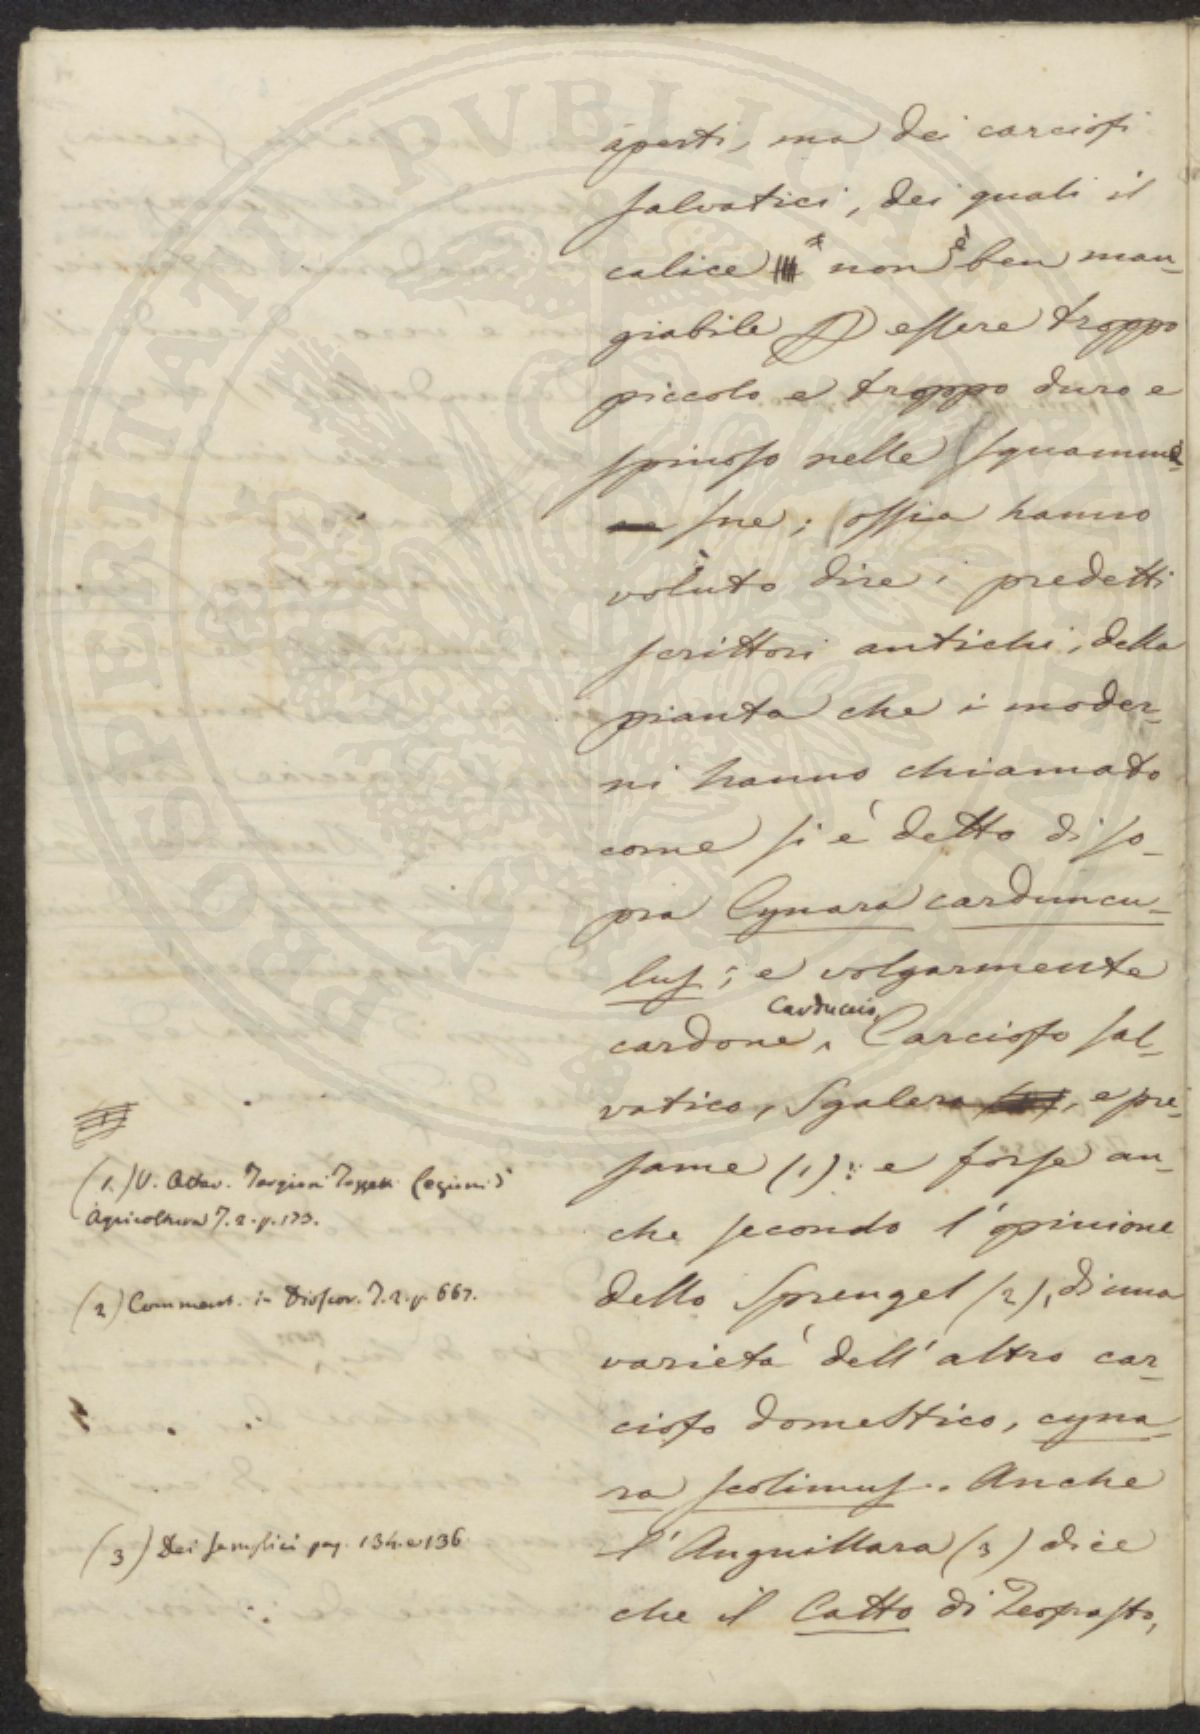 aperti, ma dei carciofi
salvatici, dei quali il
calice * non è ben man-
giabile essere troppo
piccolo e troppo duro e
spinoso nelle squamme
sue; (ossia hanno
volùto dire i predetti
scrittori antichi, della
pianta che i moder-
ni hanno chiamato
come si é detto di so-
pra Cynara carduncu-
lus; e volgarmente
cardone, Carduccio, Carciofo sal-
vatico, Sgalera, e pre-
same (1): e forse an-
che secondo l'opinione
dello Sprengel (2), di una
varietá dell'altro car-
ciofo domestico, cyna-
ra scolimus. Anche
l'Anguillara (3) dice
che il Catto di Teofrasto,
(1.) V. Ottav. Targioni Tozzetti Lezioni d'
Agricoltura T. 2. p. 173.
(2) Comment. in Dioscor. T. 2. p. 667.
(3) Dei semplici pag. 134. e 136
PROSPERITATI PUBLICAE